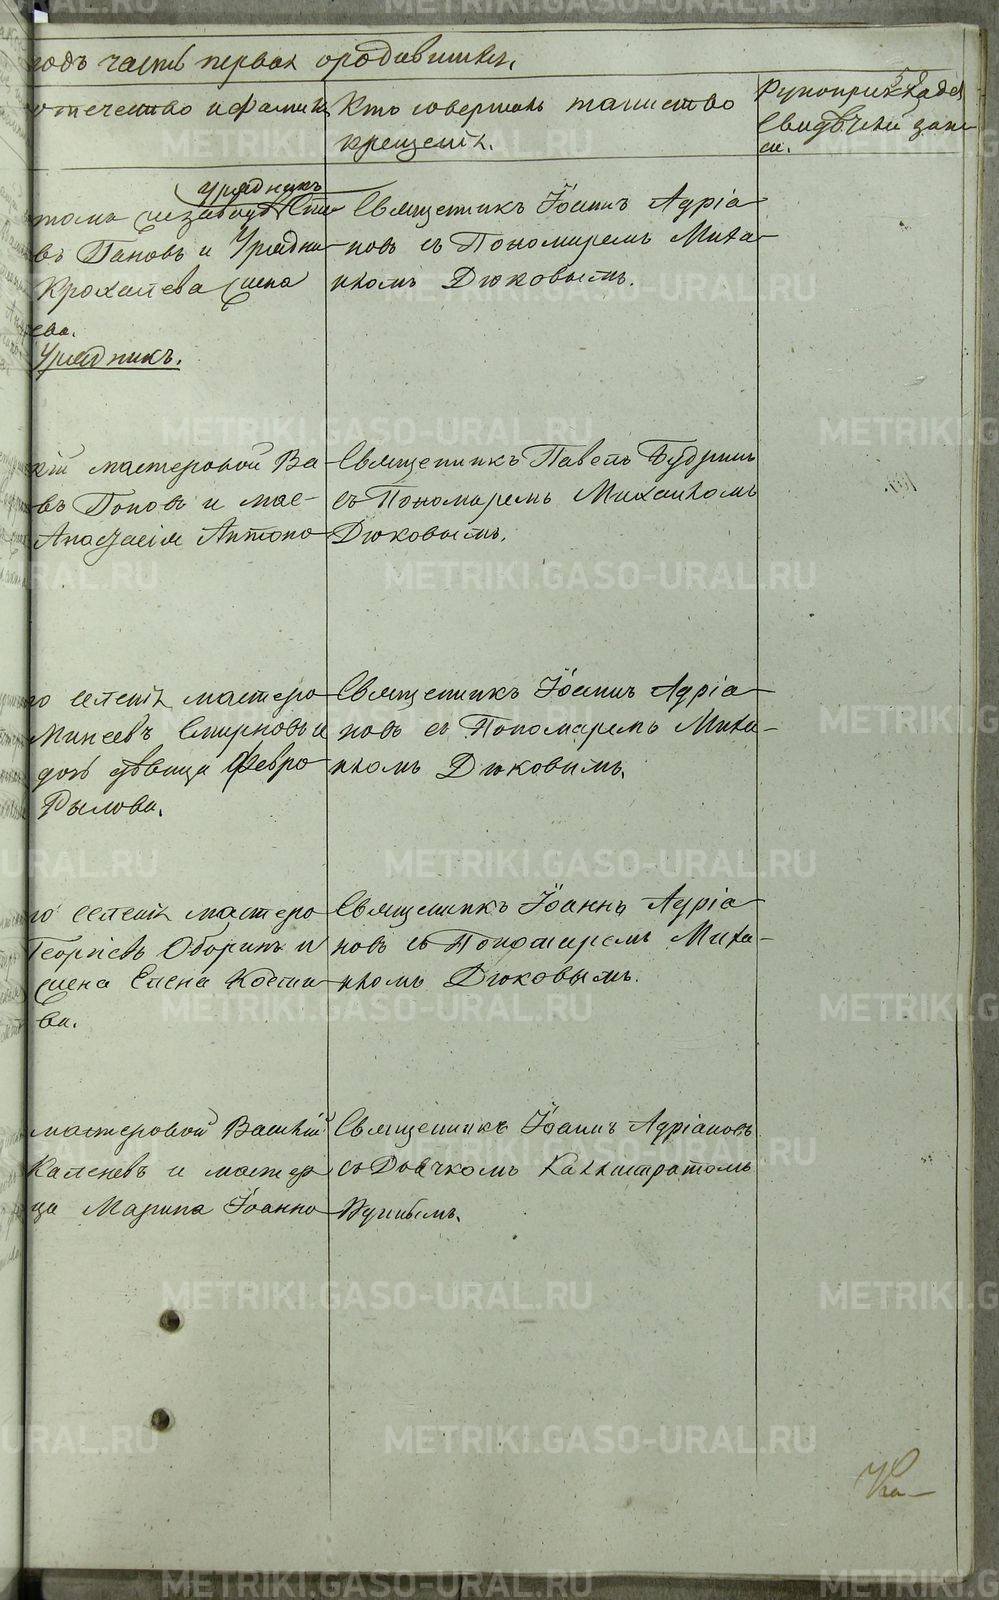 годъ часть первая ородившихся.
отечество ифамилія
Кто совершалъ таинство
крещенія.
58
Рукоприкладст
Свидѣтелей запи
си.
урядникъ
въ Пановъ и Урядни
Крохалева жена
ева.
Урядникъ.
Священникъ Іоаннъ Адріа
новъ съ Пономаремъ Миха
иломъ Дюковымъ.
кій мастеровой Ва
въ Поповъ и мас-
Анастасія Антоно
Священникъ Павелъ Будринъ
съ Пономаремъ Михаиломъ
Дюковымъ.
го селенія мастеро
Минеевъ Смирновъ и
дочь дѣвица Февро
Рылова.
Священникъ Іоаннъ Адріа
новъ съ Пономаремъ Миха
иломъ Дюковымъ.
го селенія мастеро
Георгіевъ Оборинъ и
жена Елена Коста
ва.
Священникъ Іоаннъ Адріа
новъ съ Пономаремъ Миха-
иломъ Дюковымъ.
мастеровой Василій
Каленевъ и мастер
ца Марина Іоанно
Священникъ Іоаннъ Адріановъ
съ Дьячкомъ Каллистратомъ
METRIKI.GASO-URAL.RU